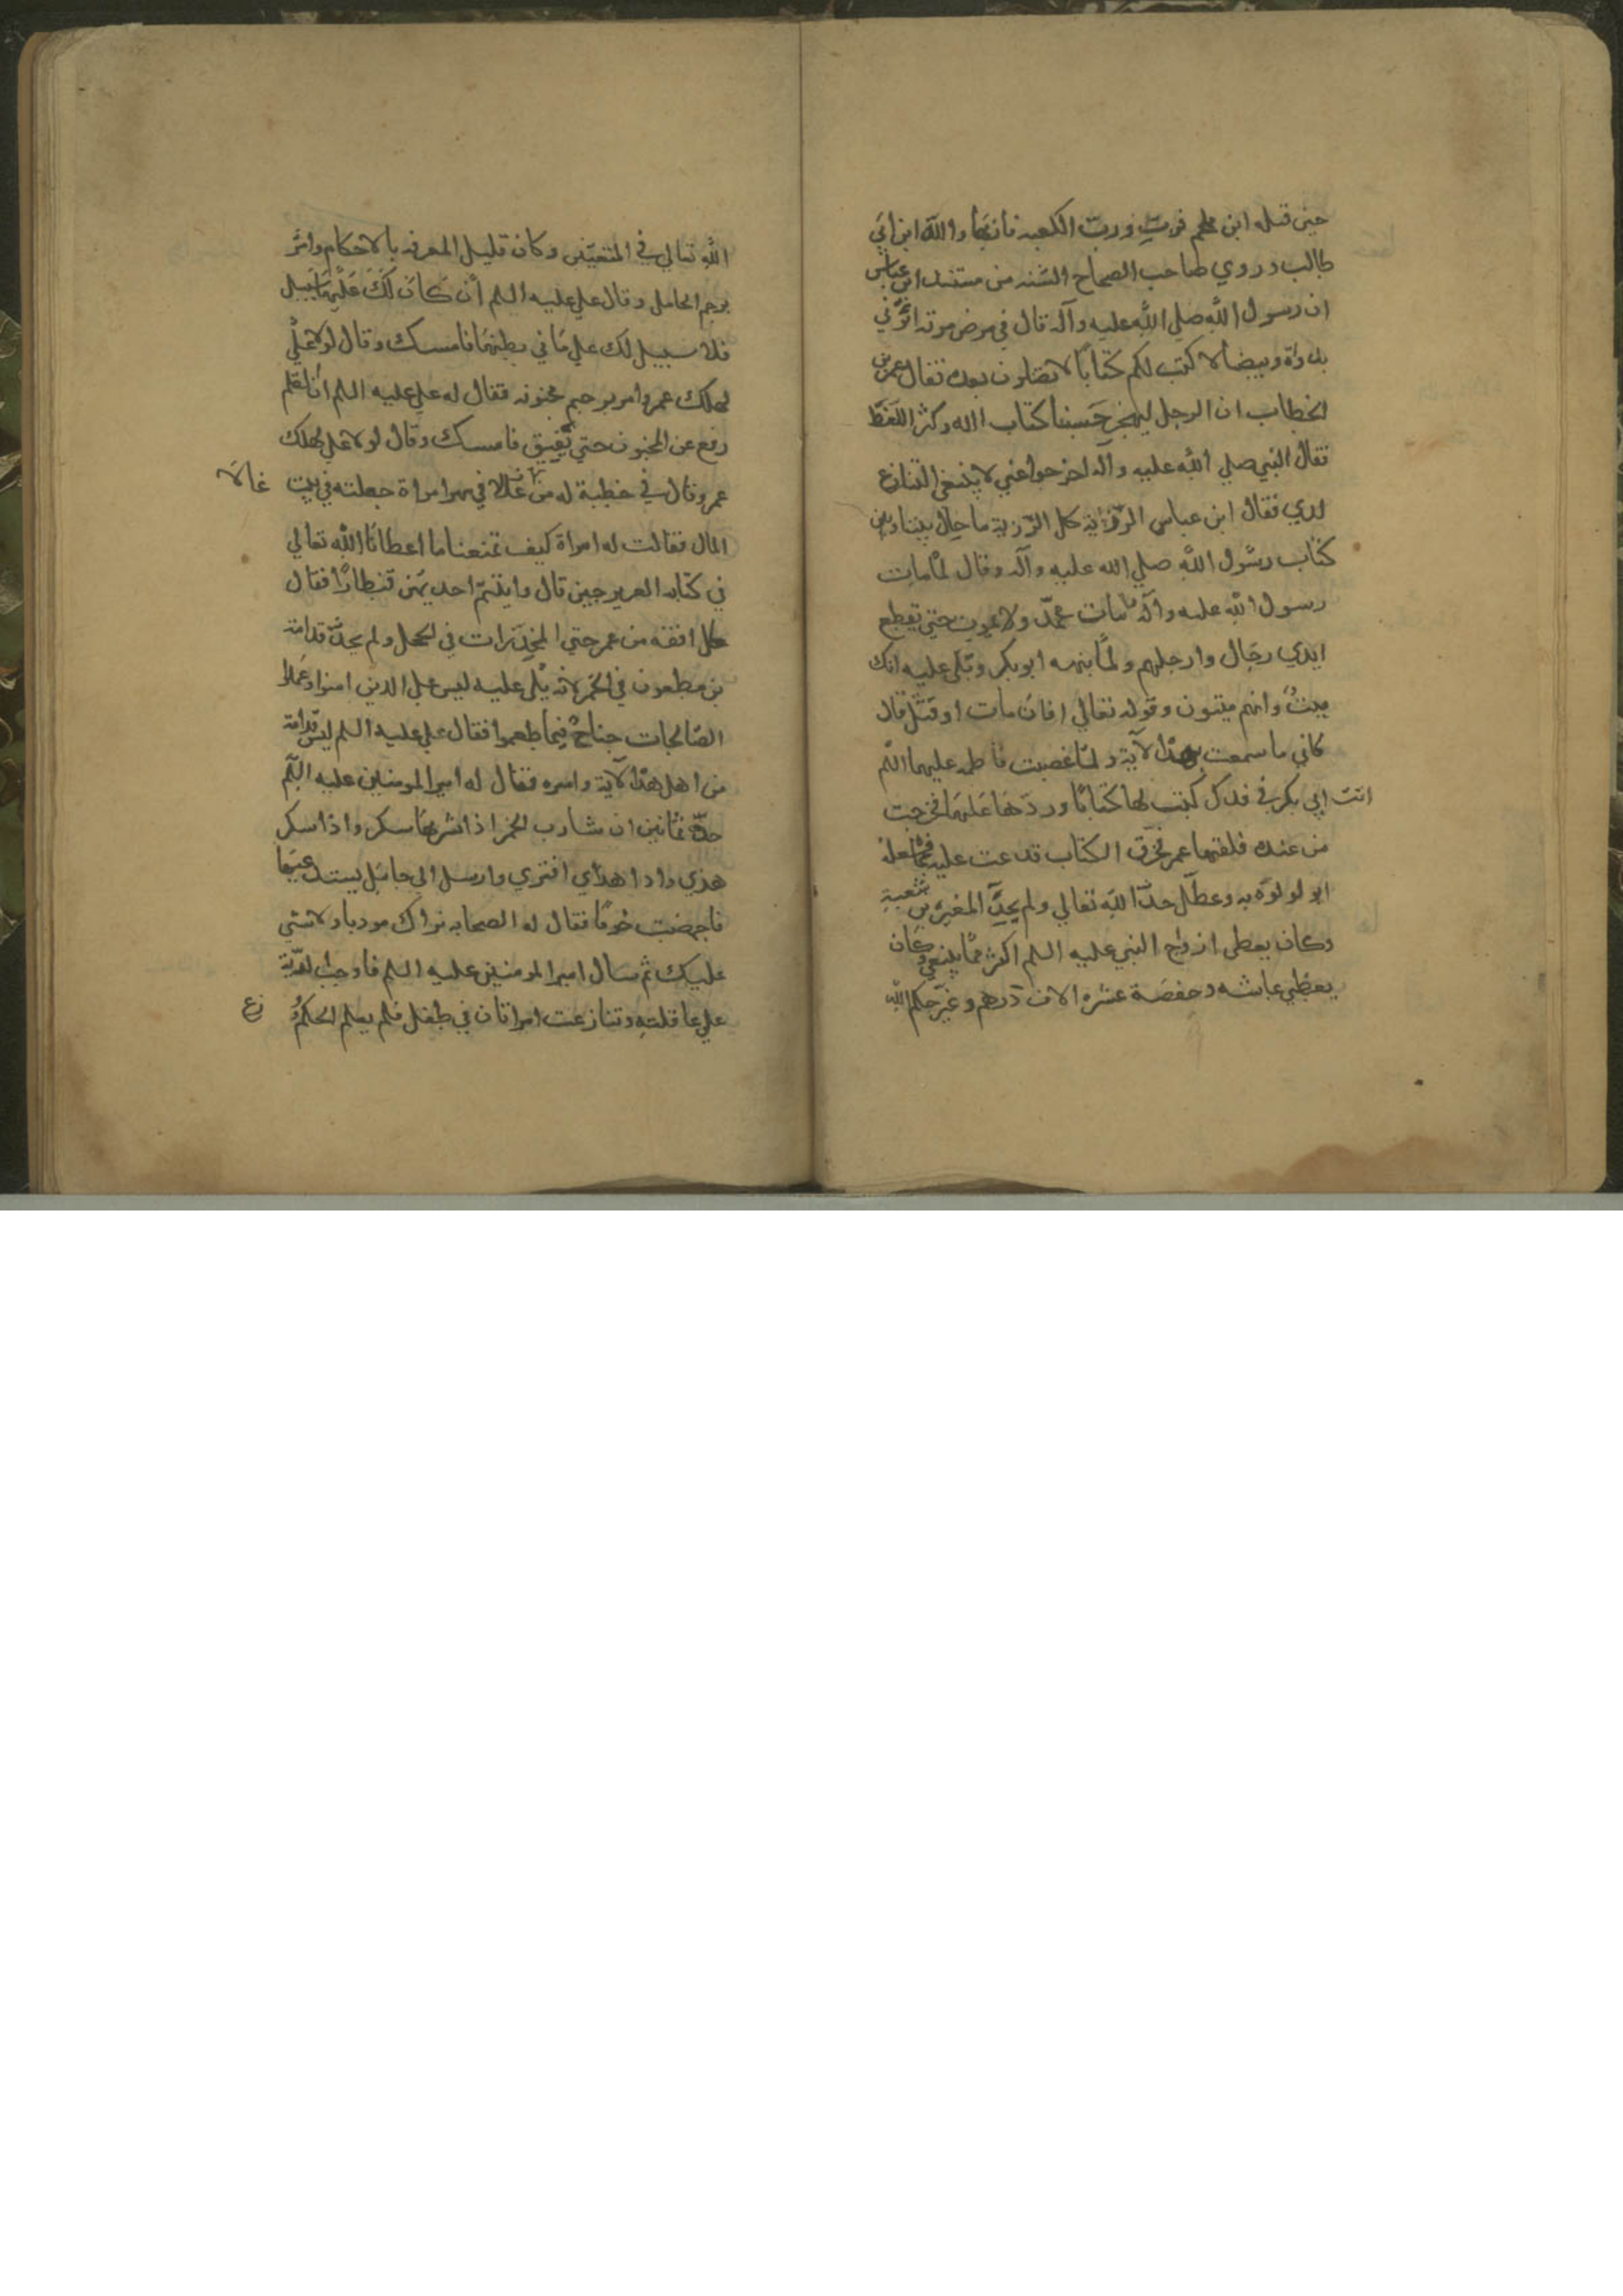 حين قتله ابن ملجم فزت ورب الكعبه فانها والله ابن ابي
طالب وروي صاحب الصحاح السته من مسند ابن عباس
ان رسول الله صلي الله عليه وآله قال في مرض موته ائتوني
بدواة وبيضا لاكتب لكم كتابا لا تضلون بعده فقال عمر بن
الخطاب ان الرجل ليهجر حسبنا كتاب الله وكثر اللغط
فقال النبي صلي الله عليه وآله اخرجوا عني لا ينبغي التنازع
لدي فقال ابن عباس الرزية كل الرزية ما حال بيننا وبين
كتاب رسول الله صلي الله عليه وآله وقال لما مات
رسول الله عليه وآله ما مات محمد ولا يموت حتي تقطع
ايدي رجال وارجلهم ولما نبهه ابو بكر وتلي عليه انك
ميت وانهم ميتون وقوله تعالي افان مات او قتل قال
كاني ما سمعت بهذه الآية ولما غصبت فاطمه عليهما السلم
اتت ابي بكر في فدك كتب لها كتابا وردها عليها فخرجت
من عنده فلقتها عمر فخرق الكتاب فدعت عليه فعله
ابو لولوه به وعطل حد الله تعالي ولم يحد المغيرة بن شعبة
وكان يعطي ازواج النبي عليه السلم اكثر مما ينبغي وكان
يعطي عايشه وحفصة عشره الاف درهم وغير حكم الله
الله تعالي في المتعتين وكان قليل المعرفه بالاحكام وامر
برجم الحامل وقال علي عليه السلم ان كان لك عليها سبيل
فلا سبيل لك علي ما في بطنها فامسك وقال لولا علي
لهلك عمر وامر برجم مجنونه فقال له علي عليه السلم ان القلم
رفع عن المجنون حتي يفيق فامسك وقال لولا علي لهلك
عمر وقال في خطبة له من غالا في مهر امراة جعلته في بيت غالا
المال فقالت له امراة كيف تمنعنا ما اعطانا الله تعالي
في كتابه العزيز حين قال وايتيتم احديهن قنطارا فقال
كل افقه من عمر حتي المخدرات في الحجل ولم يحد قدامة
بن مظعون في الخمر لانه تلي عليه ليس علي الذين امنوا وعملوا
الصالحات جناح فيما طعموا فقال علي عليه السلم ليس قدامة
من اهل هذه الآية وامره فقال له امير المومنين عليه السلم
حده ثمانين ان شارب الخمر اذا شربها سكر واذا سكر
هذي واذا هذي افتري وارسل الي حامل يستدعيها
فاجهضت خوفا فقال له الصحابه نراك مودبا ولا شي
عليك ثم سال امير المومنين عليه السلم فاوجب الدية
علي عاقلته وتنازعت امراتان في طفل فلم يعلم الحكم و فزع